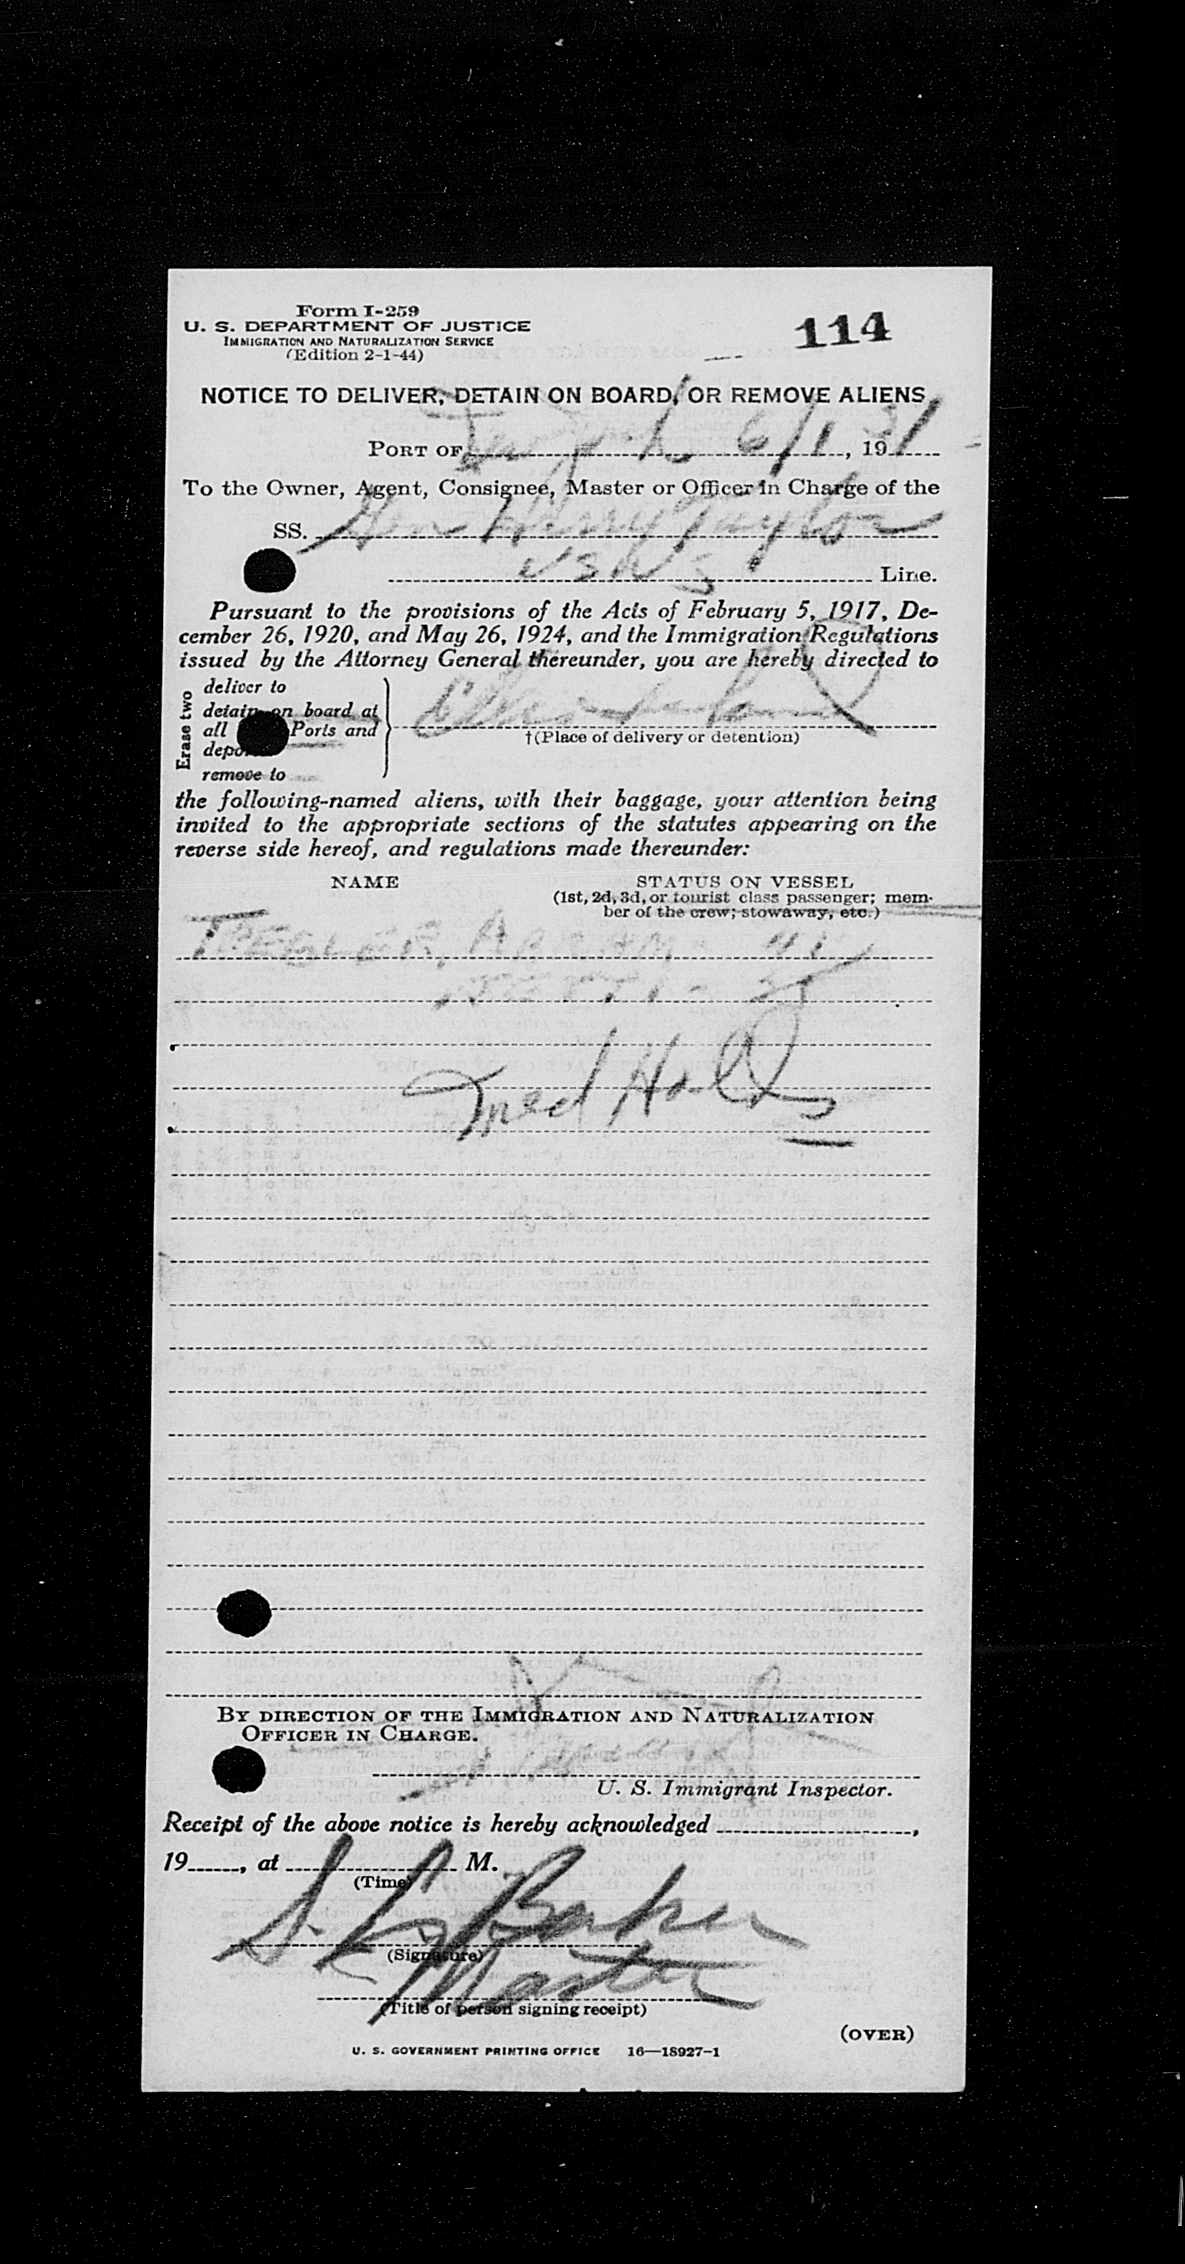 Form I-259
U. S. DEPARTMENT OF JUSTICE
IMMIGRATION AND NATURALIZATION SERVICE
(Edition 2-1-44)
114
NOTICE TO DELIVER, DETAIN ON BOARD, OR REMOVE ALIENS
PORT OF 6/1, 19
To the Owner, Agent, Consignee, Master or Officer in Charge of the
SS. Gen Harry Taylor
Line.
Pursuant to the provisions of the Acts of February 5, 1917, De-
cember 26, 1920, and May 26, 1924, and the Immigration Regulations
issued by the Attorney General thereunder, you are hereby directed to
Erase two
deliver to
detain on board at
all Ports and
remove to
Ellis Island
†(Place of delivery or detention)
the following-named aliens, with their baggage, your attention being
invited to the appropriate sections of the statutes appearing on the
reverse side hereof, and regulations made thereunder:
NAME
STATUS ON VESSEL
(1st, 2d, 3d, or tourist class passenger; mem-
ber of the crew; stowaway, etc.)
Med Hold
BY DIRECTION OF THE IMMIGRATION AND NATURALIZATION
OFFICER IN CHARGE.
U. S. Immigrant Inspector.
Receipt of the above notice is hereby acknowledged ,
19 , at M.
(Time)
Barker
(Signature)
Master
(Title of person signing receipt)
(OVER)
U. S. GOVERNMENT PRINTING OFFICE 16—18927-1